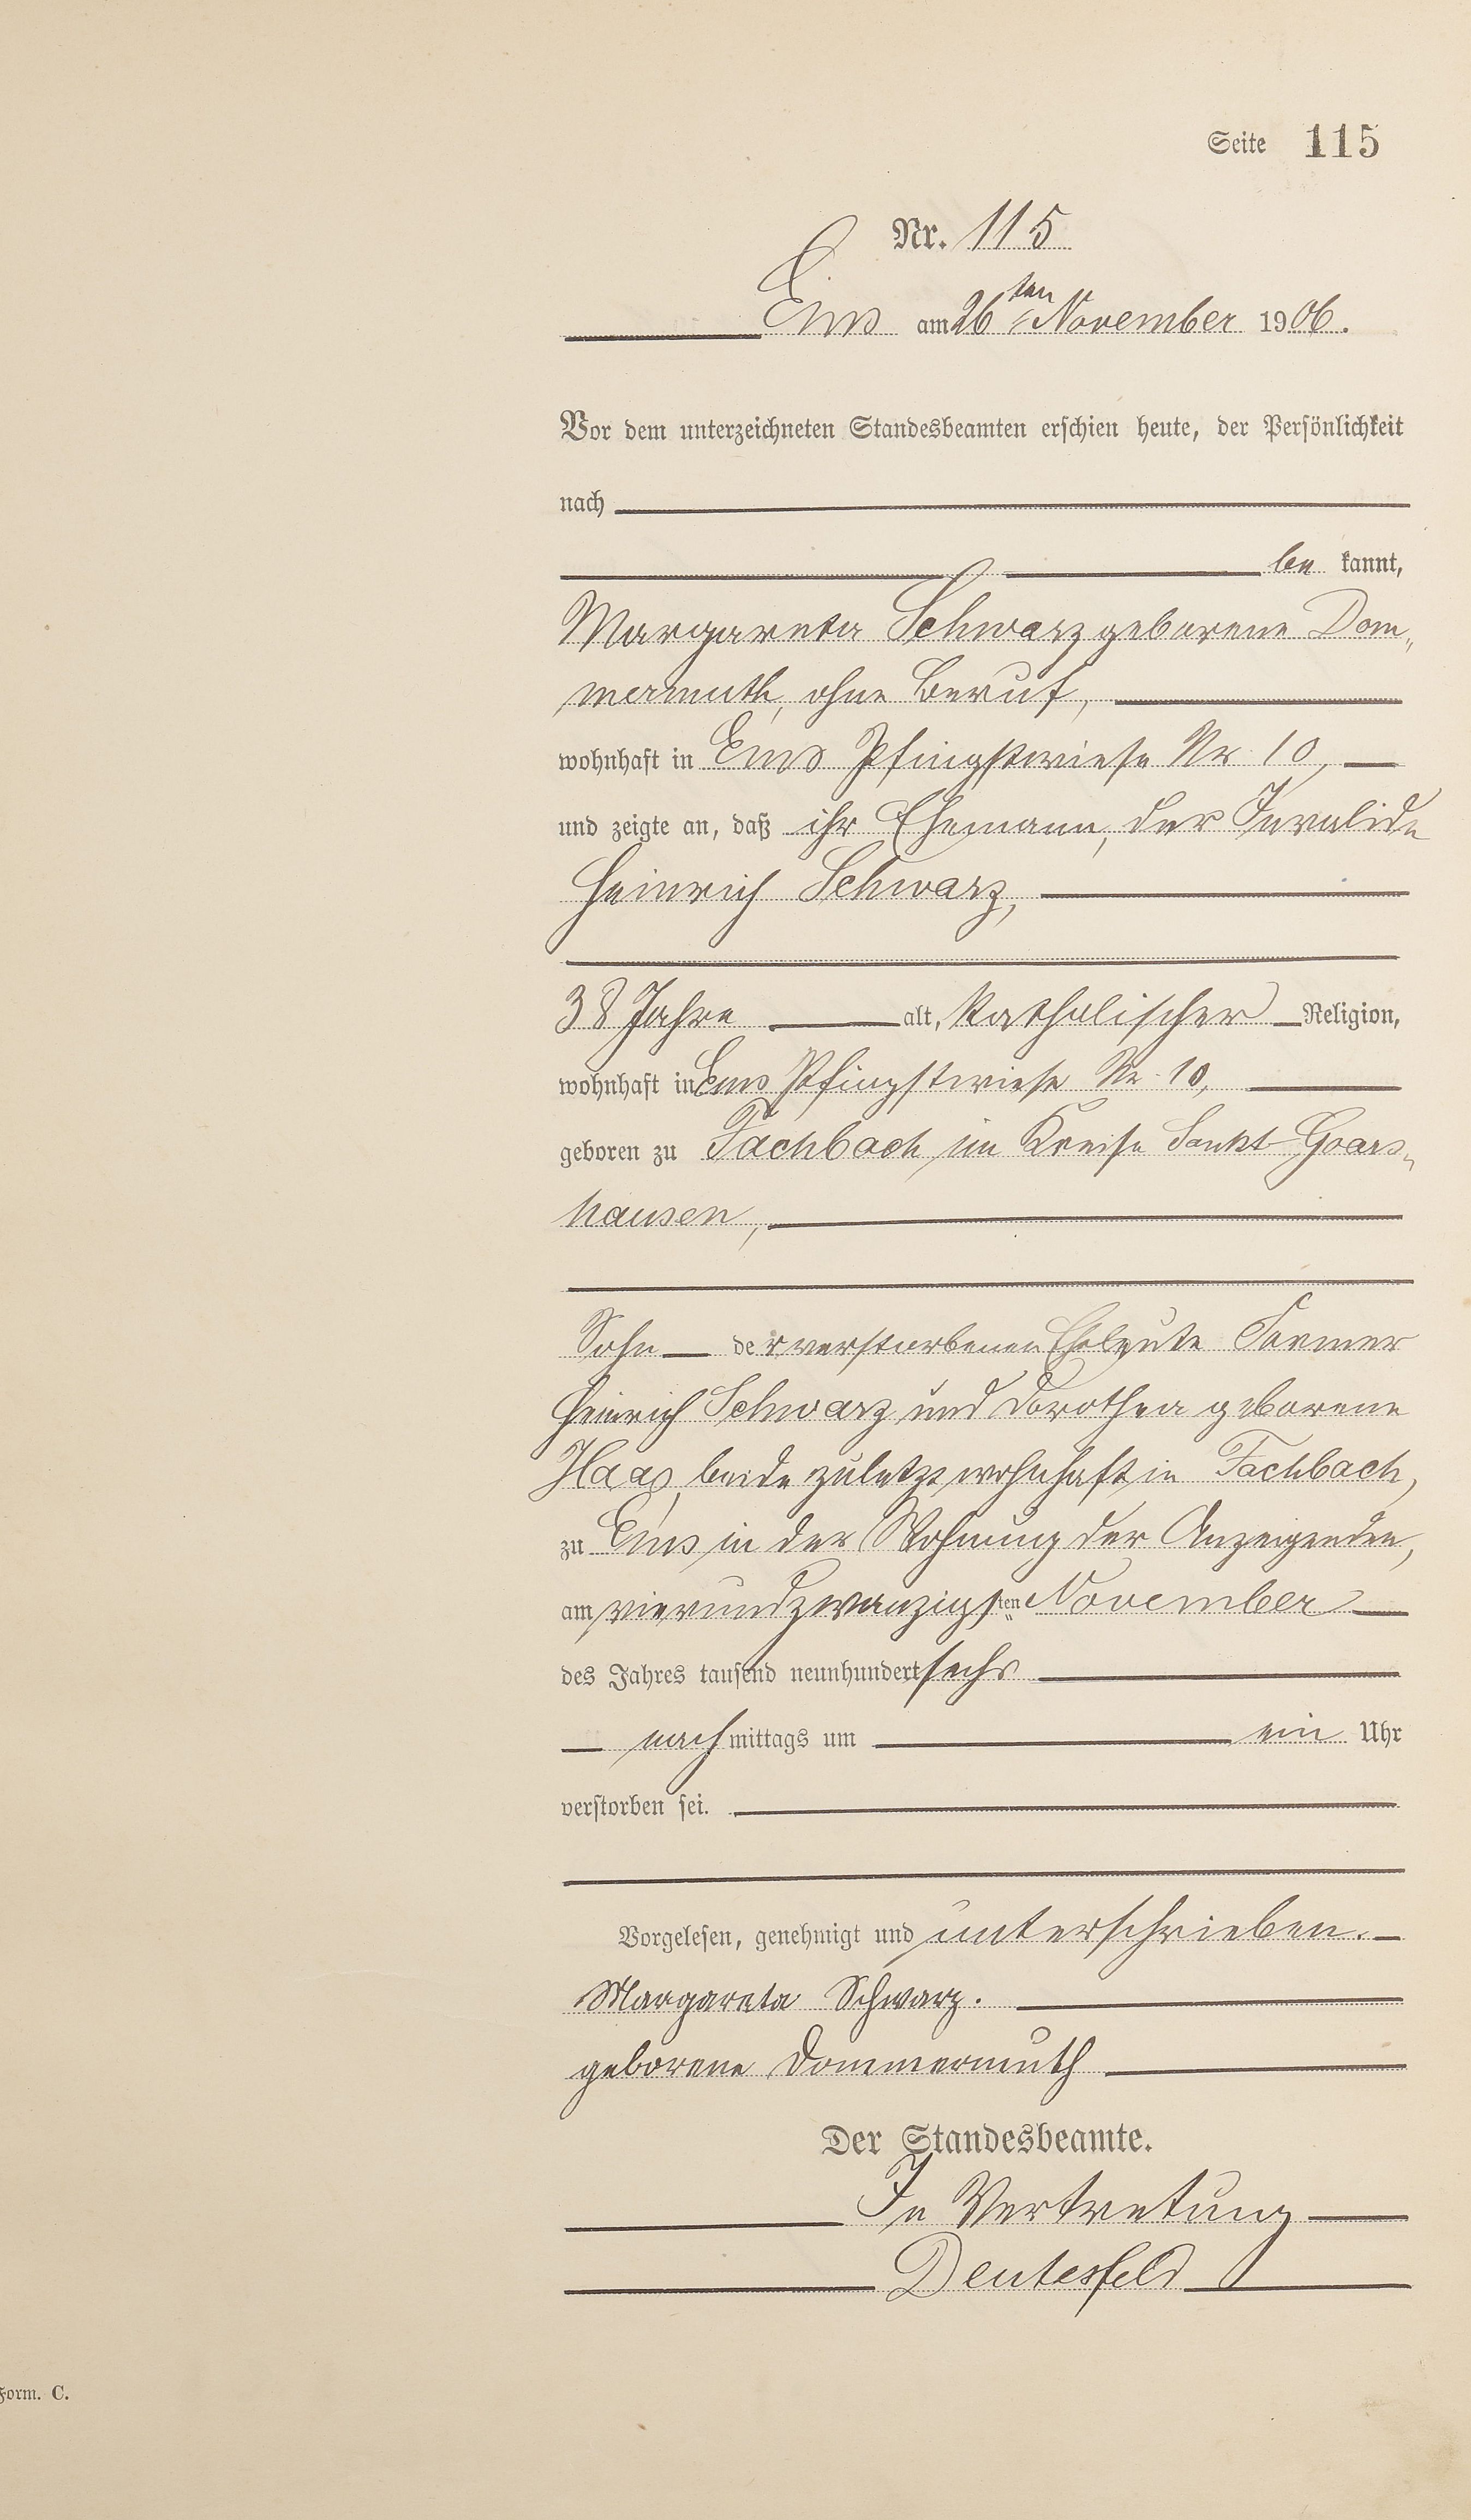 Seite 115
Nr. 115
Ems am 26ten November 1906.
Vor dem unterzeichneten Standesbeamten erschien heute, der Persönlichkeit
nach
be kannt,
Margareta Schwarz geborene Dom„
mermuth, ohne Beruf,
wohnhaft in Ems Pfingstwiese Nr 10,
und zeigte an, daß ihr Ehemann, der Invalide
Heinrich Schwarz,
38 Jahre alt, katholischer Religion,
wohnhaft in Ems Pfingstwiese Nr 10,
geboren zu Fachbach im Kreise Sankt-Goars„
hausen,
Sohn der verstorbenen Eheleute Former
Heinrich Schwarz und Dorothea geborene
Haas, beide zuletzt wohnhaft in Fachbach,
zu Ems in der Wohnung der Anzeigenden,
am vierundzwanzigsten November
des Jahres tausend neunhundert sechs
nach mittags um ein Uhr
verstorben sei.
Vorgelesen, genehmigt und unterschrieben.
Margareta Schwarz.
geborene Dommermuth
Der Standesbeamte.
In Vertretung
Deutesfeld
Form. C.